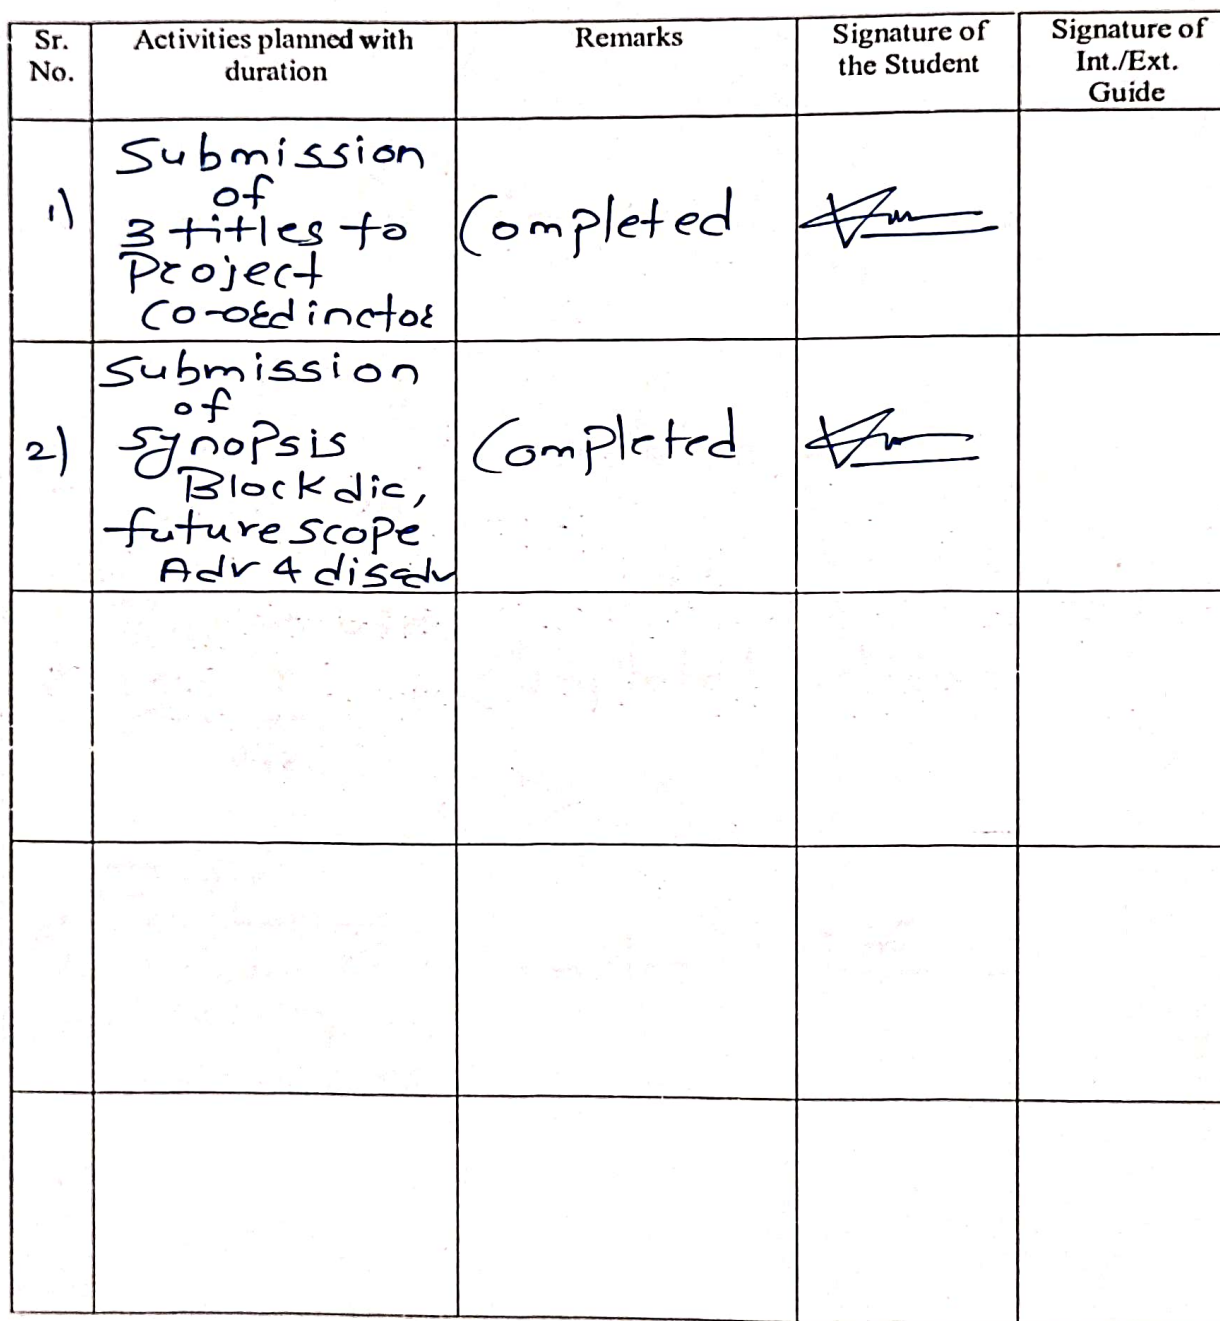 Sr. No.
Activities planned with duration
Remarks
Signature of the Student
Signature of Int./Ext. Guide
1)
Submission
of
3 titles to
Project
Co-ordinctor
Completed
2)
Submission
of
Synopsis
Block dic,
future scope
Adv & disadv
Completed